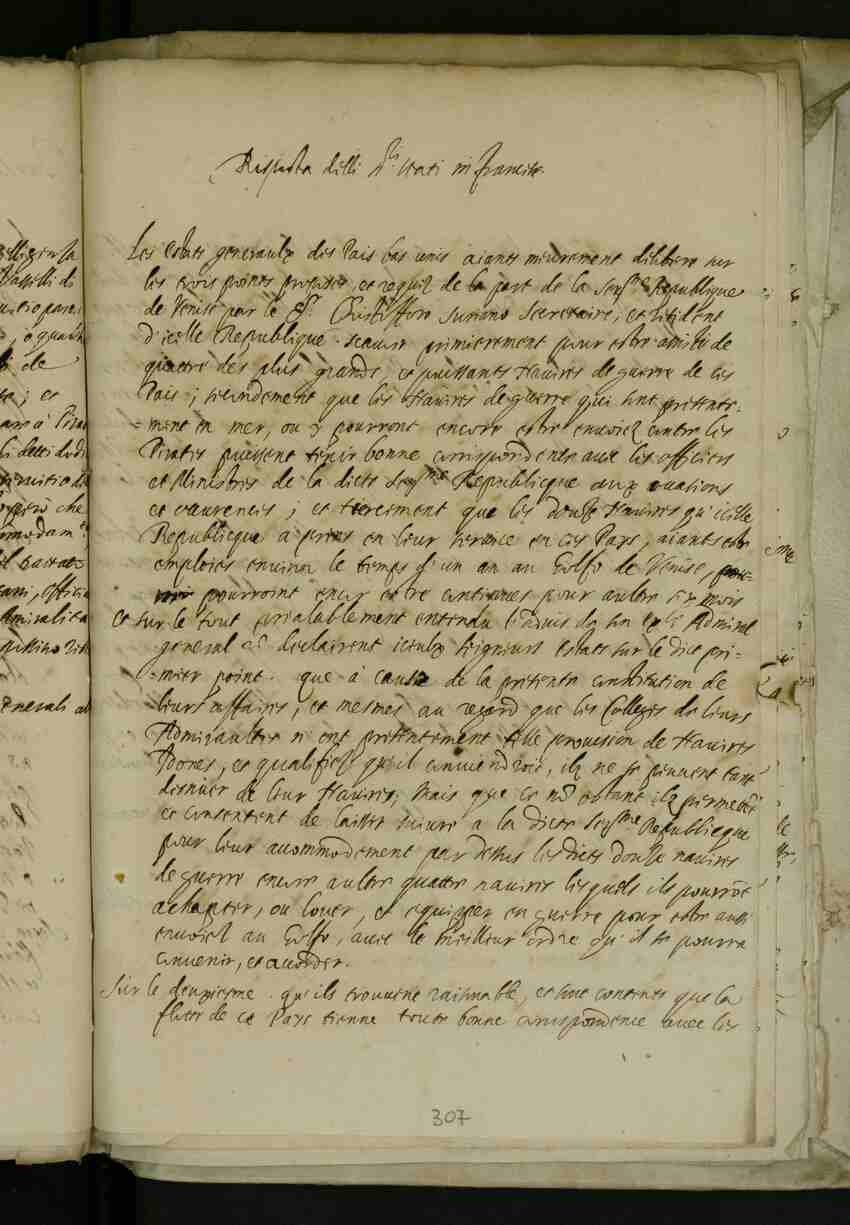 Risposta delli SS.ri stati in francese
Les Estats generaulx des Pais bas unis aiants meurement delibere sur
les trois points proposez, et requiz de la part de la Ser.me Republique
de Venise par le S.r Christofforo Suriano Secretaire, et resident
d'icelle Republique. scavoir primierement pour estre de
quattre des plus grands, et puissants Navires de guerre de ces
Pais; secondement que les Navires de guerre qui sont presente-
-ment en mer, ou y pourront encore estre envoiez contre les
Pirates puissent tenir bonne correspondente avec les officiers
et Ministres de la dicte Ser.me Republicque aux occasions
et occurences; et tiercement que les douze Navires qu'icelle
Republicque a prins en leur service en ces Pays, aiants este
emploies environ le temps d'un an au Golfo de Venise,
pourroint encor estre continues pour aultre six mois
et sur le tout prialablement entendu l'advis de son Ex.ce Admiral
general declairent iceulx seigneurs Estats sur le dict pri-
-mier point. que à cause de la presente constitution de
leurs affaires, et mesmes au regard que les Colleges de leurs
Admiraultes n'ont presentement telle provision de Navires
Dores, et qualifiez qu'il conviendroit, ilz ne se peuvent
desnuer de leur Navires, Mais que ce no obstant ilz permettēt
et consentent de laisser suivre a la dicte Ser.me Republicque
pour leur accommodement par dessus les dicts douze navires
de guerre encore aultre quattre navires lesquels ils pourrōt
achapter, ou louer, et equipper en guerre pour estre aussi
envoiez au Golfo, avec le meilleur ordre qu'il se pourra
convenir, et accorder.
Sur le deuxiesme. qu'ils trouvent raisonable, et sont contents que la
flote de ce Pays tienne toute bonne correspondence avec les
307